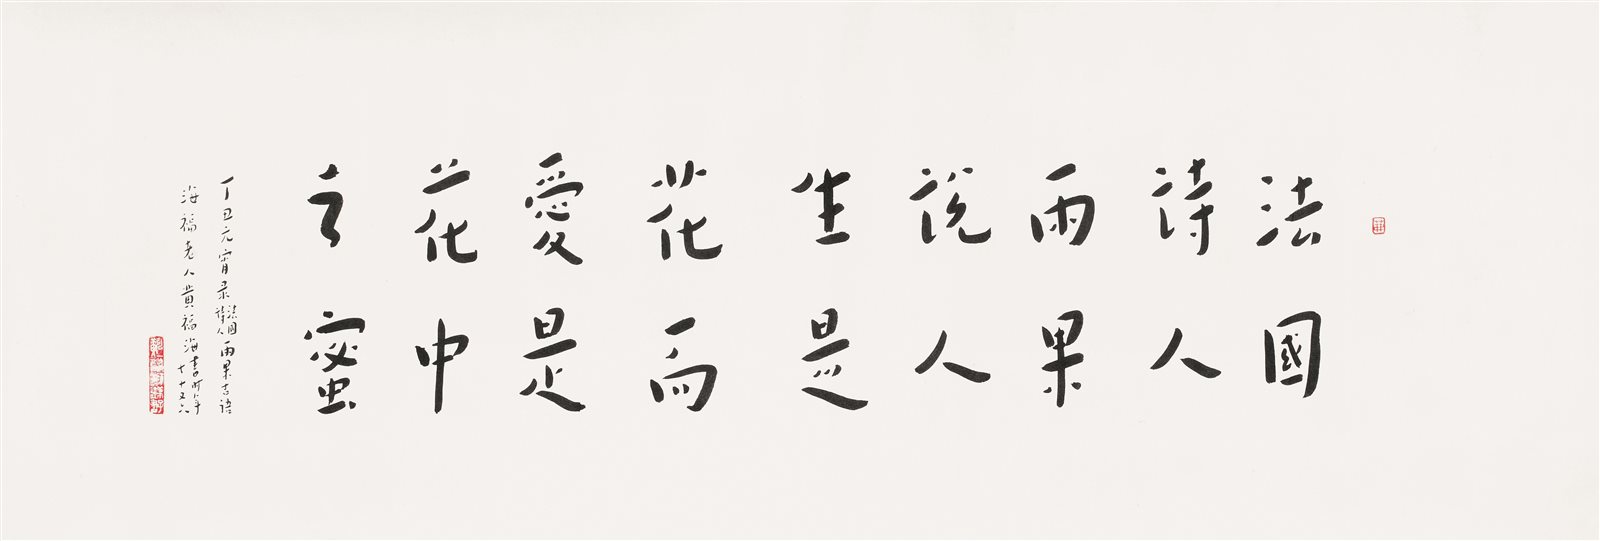 法國
詩人
雨果
說人
生是
花而
愛是
花中
之蜜
丁丑元宵录法國詩人雨果吉語
海福老人黄福海書时年七十又六